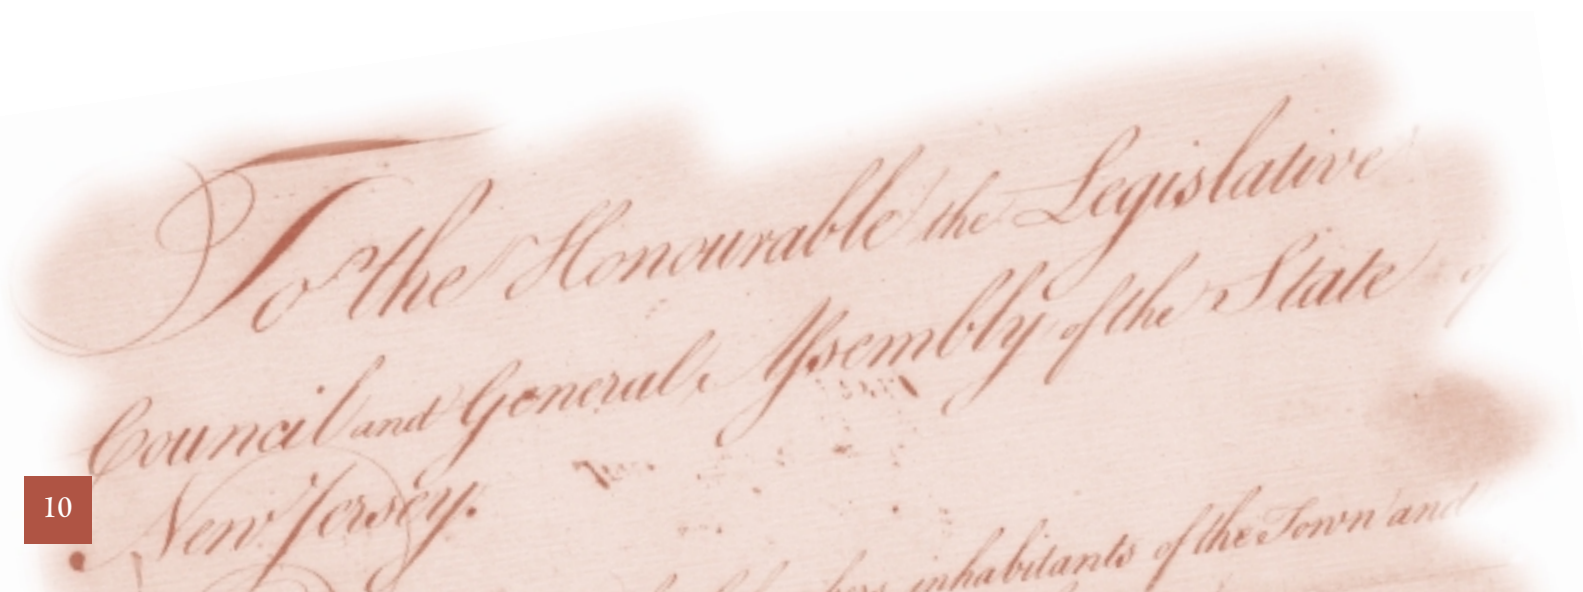 To the Honourable the Legislative
Council and General Assembly of the State of
New Jersey.
10
inhabitants of the Town and